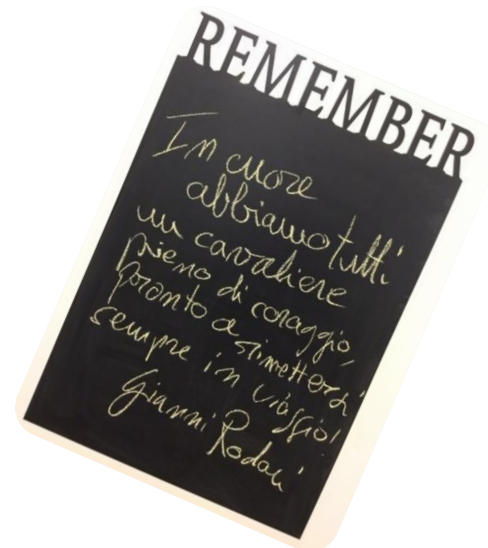 REMEMBER
In cuore
abbiamo tutti
un cavaliere
pieno di coraggio,
pronto a rimettersi
sempre in viaggio!
Gianni Rodari